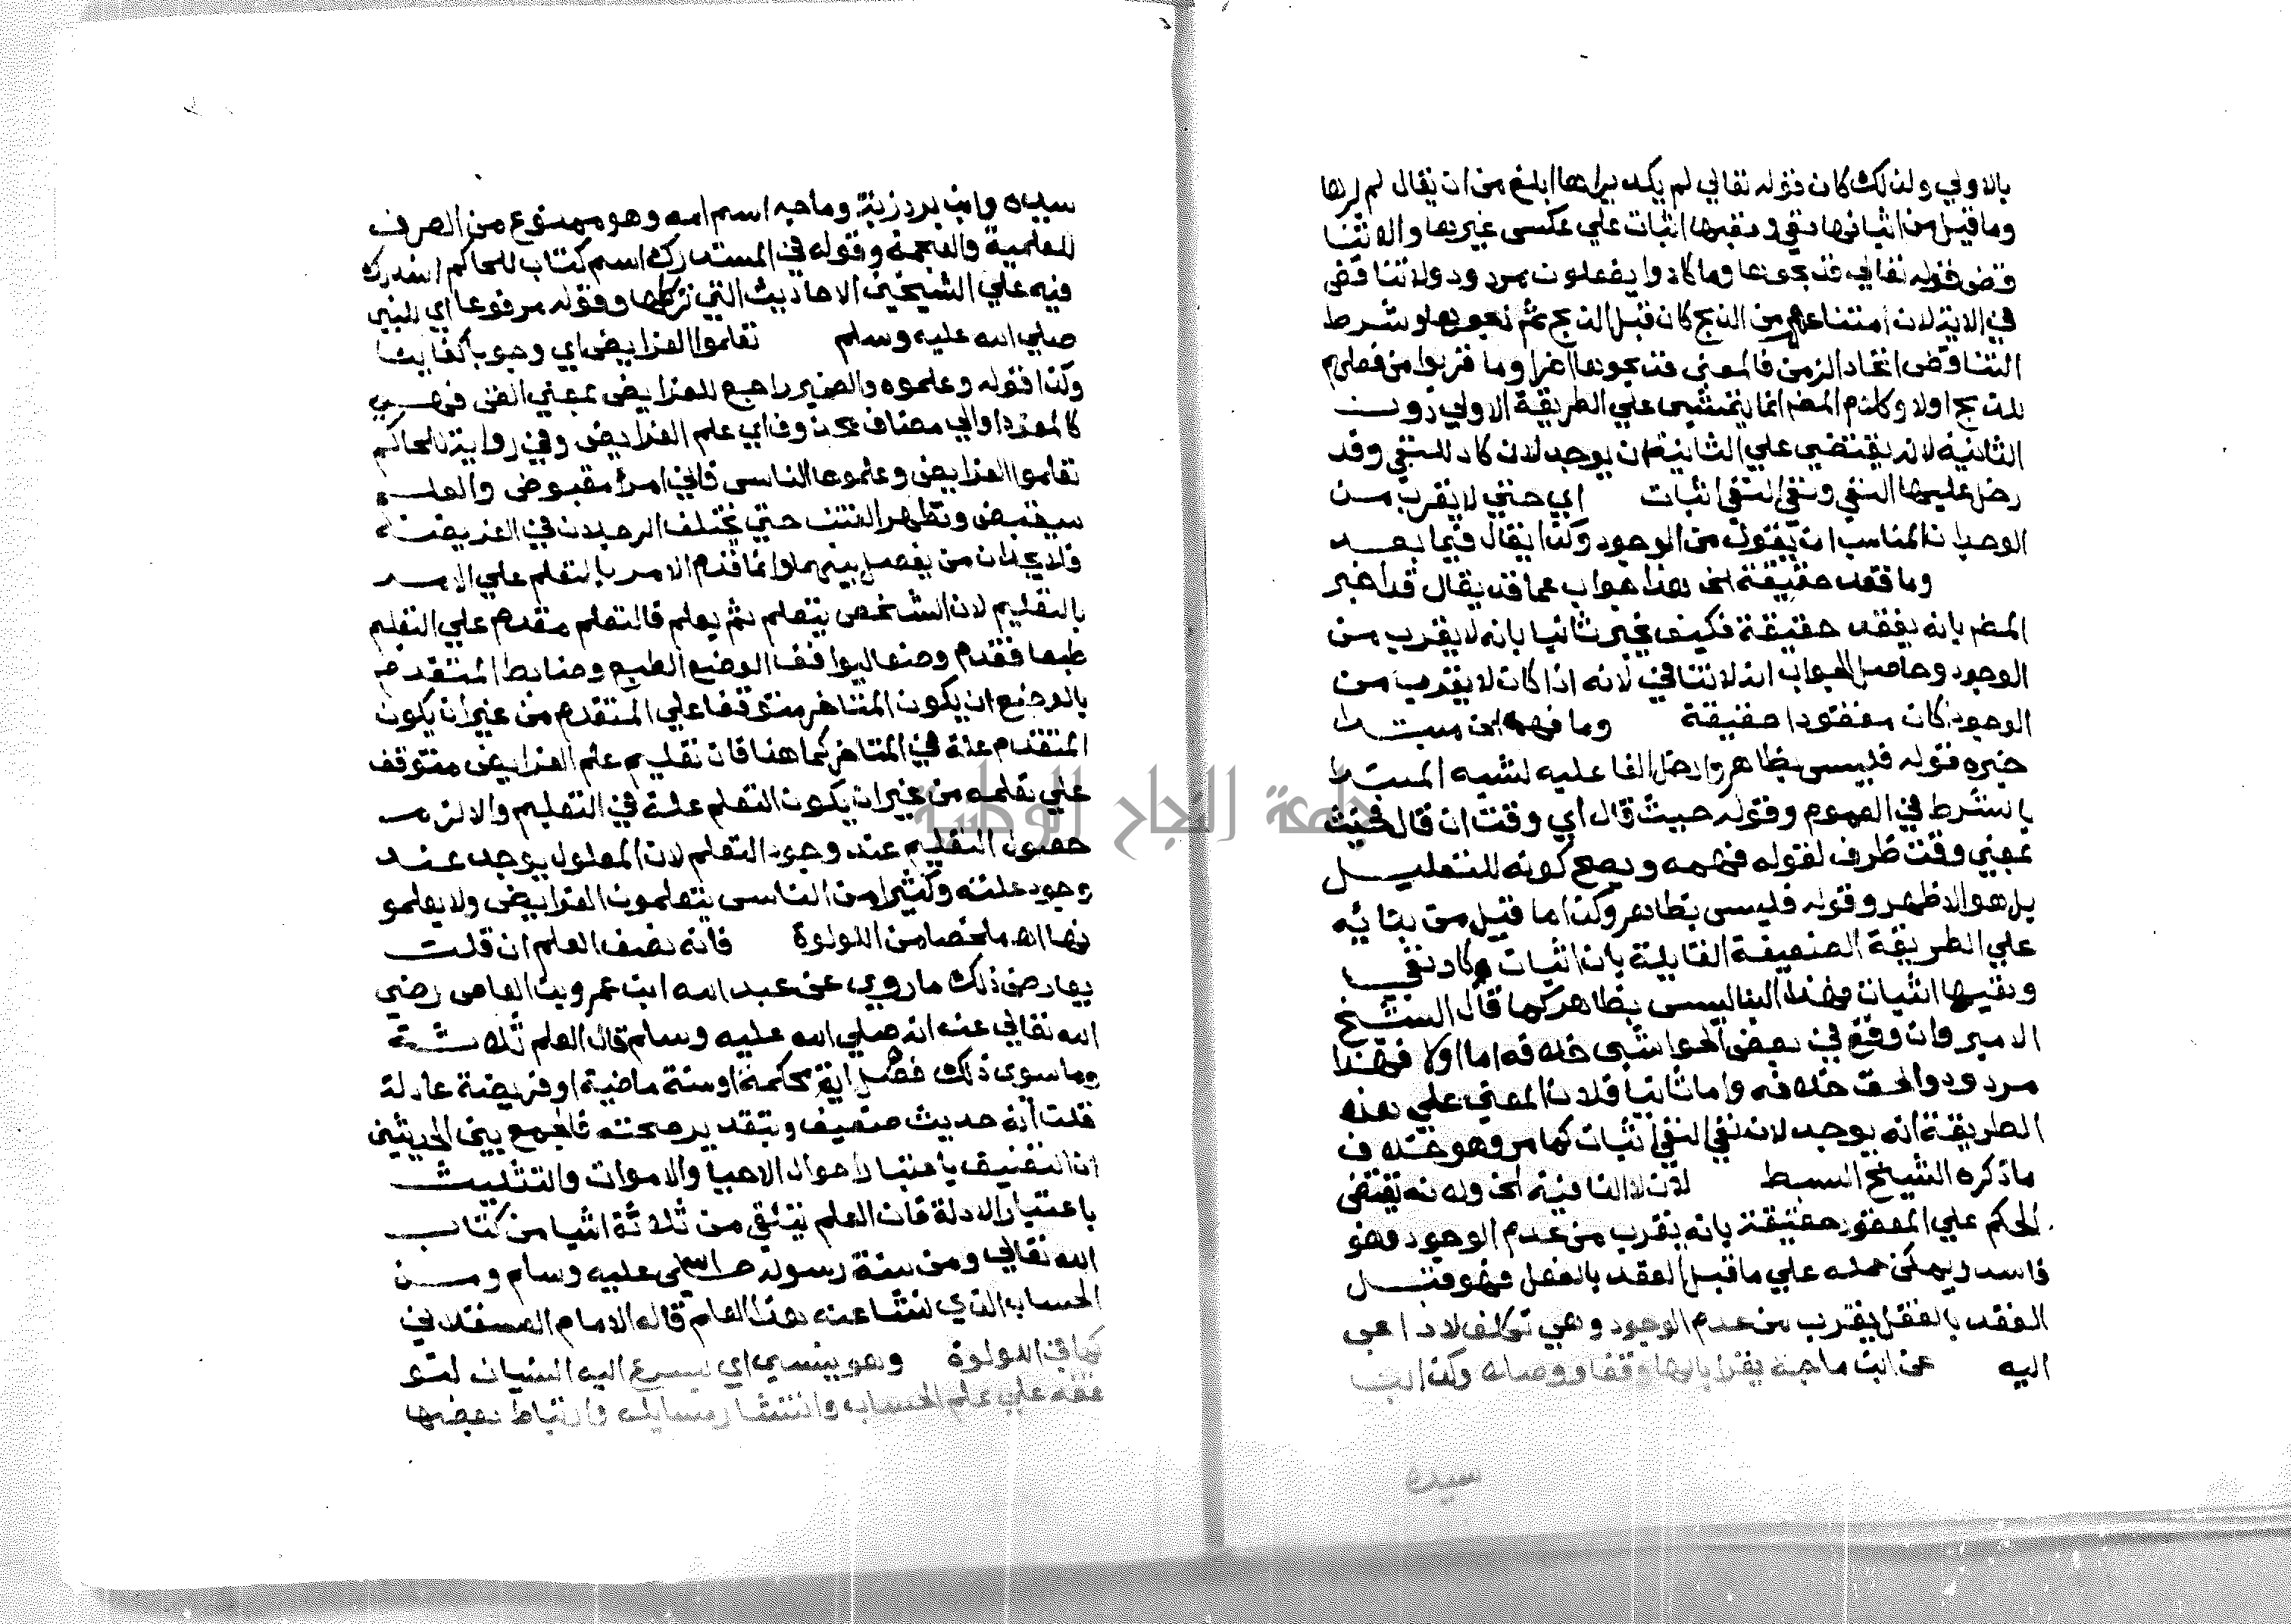 بالاولي ولذلك كان قوله تعالي لم يكد يراها ابلغ من ان يقال لم يرها
وما قيل من اثباتها نفي ونفيها اثبات علي عكس غيرها والا لتنا
قض قوله تعالي فذبحوها وما كادوا يفعلون مردود ولا تناقض
في الاية لان امتناعهم من الذبح كان قبل الذبح ثم ذبحوها وشرط
التناقض اتحاد الزمن فالمعني فذبحوها اخرا وما قربوا من فعلهم
للذبح اولا وكلام المصنف انما يتمشي علي الطريقة الاولي دون
الثانية لانه يقتضي علي الثانية ان يوجد لان كاد للنفي وقد
دخل عليها النفي ونفي النفي اثبات اي حتي لا يقرب من
الوجدان المناسب ان يقول من الوجود وكذا يقال فيما بعد
وما فقد حقيقة الخ هذا جواب عما قد يقال قد اخبر
المصنف بانه يفقد حقيقة فكيف يخبر ثانيا بانه لا يقرب من
الوجود وحاصل الجواب انه لا تنافي لانه اذا كان لا يقرب من
الوجود كان مفقودا حقيقة وما فهمه ابن مبتدا
خبره قوله فليس بظاهر وادخل الفا عليه لشبه المبتدا
بالشرط في العموم وقوله حيث قال اي وقت ان قال فحيث
بمعني وقت ظرف لقوله فهمه ويصح كونه للتعليل
بل هو الاظهر وقوله فليس بظاهر وكذا ما قيل من بنائه
علي الطريقة الضعيفة القايلة بان اثبات كاد نفي
ونفيها اثبات فهذا ايضا ليس بظاهر كما قال الشيخ
الامير وان وقع في بعض الحواشي خلافه اما اولا فهذا
مردود والحق خلافه واما ثانيا فلان المعني علي هذه
الطريقة انه يوجد لان نفي النفي اثبات كما مر وهو خلاف
ما ذكره الشيخ السبط لان لا النافية الخ ولانه يقتضي
الحكم علي المفقود حقيقة بانه يقرب من عدم الوجود فهو
فاسد ويمكن حمله علي ما قبل الفقد بالفعل فهو قبل
الفقد بالفعل يقرب من عدم الوجود وهي تكلف لا داعي
اليه عن ابن ماجة يقرا بالها وقفا ووصلا وكذا ابن
سيده
سيده وابن بردزبة وماجه اسم امه وهو ممنوع من الصرف
للعلمية والعجمة وقوله في المستدرك اسم كتاب للحاكم استدرك
فيه علي الشيخين الاحاديث التي تركاها وقوله مرفوعا اي للنبي
صلي الله عليه وسلم تعلموا الفرايض اي وجوبا كفائيا
وكذا قوله وعلموه والضمير راجع للفرايض بمعني الفن فهي
كالمفرد او الي مضاف محذوف اي علم الفرايض وفي رواية للحاكم
تعلموا الفرايض وعلموها الناس فاني امرؤ مقبوض والعلم
سيقبض وتظهر الفتن حتي يختلف الرجلان في الفريضة
فلا يجدان من يفصل بينهما وانما قدم الامر بالتعلم علي الامر
بالتعليم لان الشخص يتعلم ثم يعلم فالتعلم مقدم علي التعليم
طبعا فقدم وضعا ليوافق الوضع الطبع وضابط المتقدم
بالوضع ان يكون المتاخر متوقفا علي المتقدم من غير ان يكون
المتقدم علة في المتاخر كما هنا فان تعليم علم الفرايض متوقف
علي تعلمه من غير ان يكون التعلم علة في التعليم والا لزم
حصول التعليم عند وجود التعلم لان المعلول يوجد عند
وجود علته وكثيرا من الناس يتعلمون الفرايض ولا يعلمو
نها اه ملخصا من اللولوة فانه نصف العلم ان قلت
يعارض ذلك ما روي عن عبد الله ابن عمرو بن العاص رضي
الله تعالي عنه انه صلي الله عليه وسلم قال العلم ثلاثة
وما سوي ذلك فضل اية محكمة او سنة ماضية او فريضة عادلة
قلت انه حديث ضعيف وبتقدير صحته فالجمع بين الحديثين
ان التنصيف باعتبار احوال الاحيا والاموات والتثليث
باعتبار الادلة فان العلم يتلقي من ثلاثة اشيا من كتاب
الله تعالي ومن سنة رسوله صلي الله عليه وسلم ومن
الحساب الذي نشا عنه هذا العلم قاله الامام العسقلاني
كما في اللولوة وهو ينسي اي يسرع اليه النسيان لتو
قفه علي علم الحساب وانتشار مسايله وارتباط بعضها
جامعة النجاح الوطنية